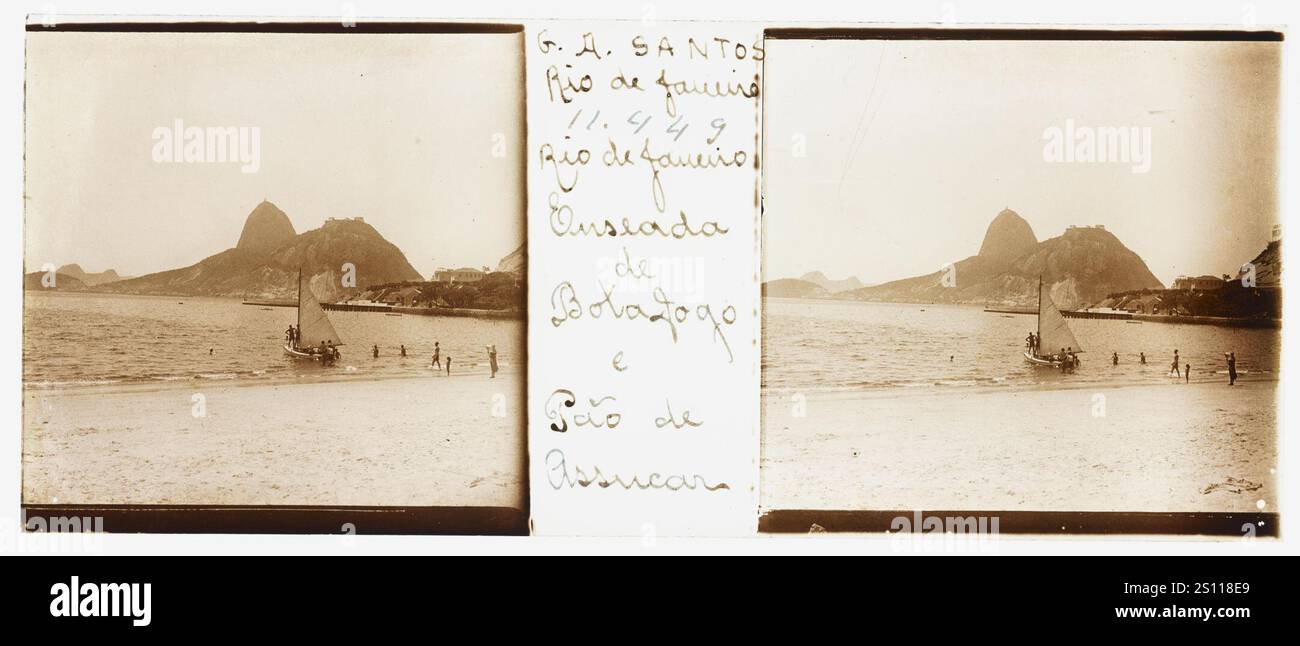 G. A. SANTOS
Rio de Janeiro
11.449
Rio de Janeiro
Enseada
de
Botafogo
e
Pão de
Assucar
alamy
alamy
alamy
Image ID: 2S118E9
www.alamy.com